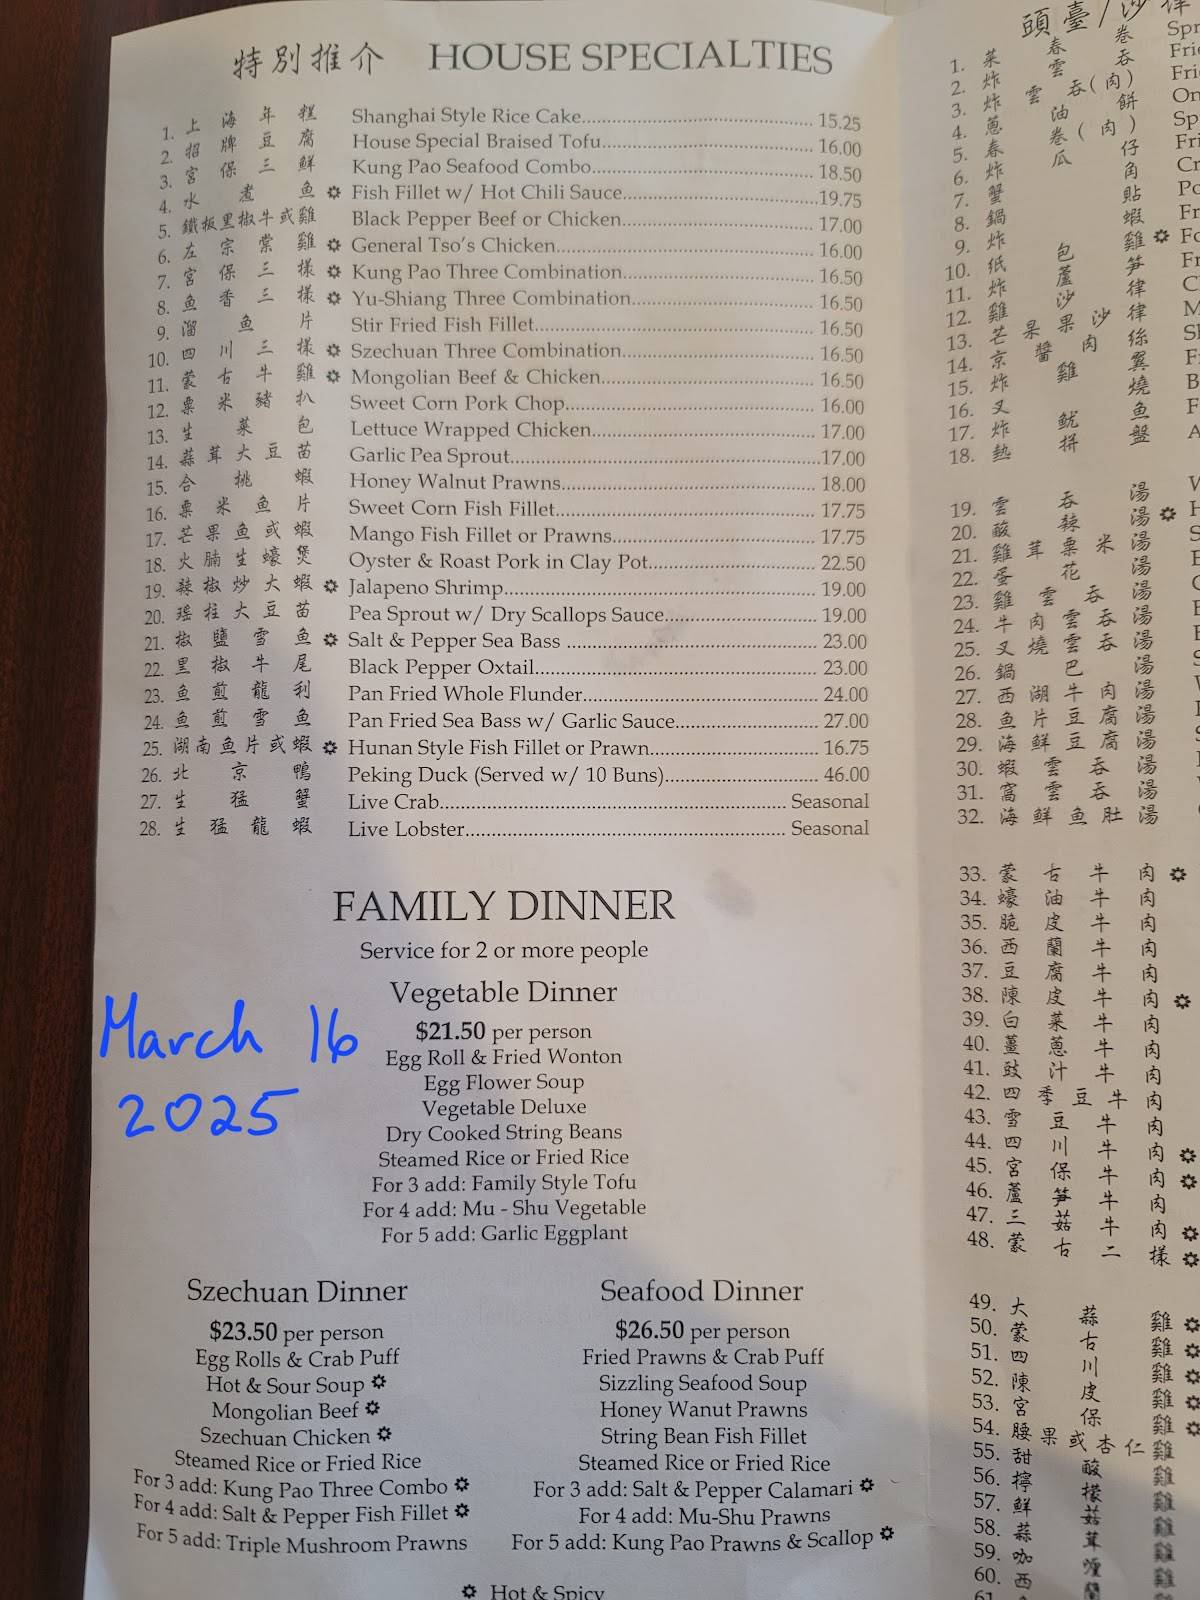 特別推介 HOUSE SPECIALTIES
1. 上海年糕 Shanghai Style Rice Cake 15.25
2. 招牌豆腐 House Special Braised Tofu 16.00
3. 宮保三鮮 Kung Pao Seafood Combo 18.50
4. 水煮魚 Fish Fillet w/ Hot Chili Sauce 19.75
5. 鐵板黑椒牛或雞 Black Pepper Beef or Chicken 17.00
6. 左宗棠雞 General Tso's Chicken 16.00
7. 宮保三樣 Kung Pao Three Combination 16.50
8. 魚香三樣 Yu-Shiang Three Combination 16.50
9. 溜魚片 Stir Fried Fish Fillet 16.50
10. 四川三樣 Szechuan Three Combination 16.50
11. 蒙古牛雞 Mongolian Beef & Chicken 16.50
12. 粟米豬扒 Sweet Corn Pork Chop 16.00
13. 生菜包 Lettuce Wrapped Chicken 17.00
14. 蒜茸大豆苗 Garlic Pea Sprout 17.00
15. 合桃蝦 Honey Walnut Prawns 18.00
16. 粟米魚片 Sweet Corn Fish Fillet 17.75
17. 芒果魚或蝦 Mango Fish Fillet or Prawns 17.75
18. 火腩生蠔煲 Oyster & Roast Pork in Clay Pot 22.50
19. 辣椒炒大蝦 Jalapeno Shrimp 19.00
20. 瑤柱大豆苗 Pea Sprout w/ Dry Scallops Sauce 19.00
21. 椒鹽雪魚 Salt & Pepper Sea Bass 23.00
22. 黑椒牛尾 Black Pepper Oxtail 23.00
23. 魚煎龍利 Pan Fried Whole Flunder 24.00
24. 魚煎雪魚 Pan Fried Sea Bass w/ Garlic Sauce 27.00
25. 湖南魚片或蝦 Hunan Style Fish Fillet or Prawn 16.75
26. 北京鴨 Peking Duck (Served w/ 10 Buns) 46.00
27. 生猛蟹 Live Crab Seasonal
28. 生猛龍蝦 Live Lobster Seasonal
FAMILY DINNER
Service for 2 or more people
Vegetable Dinner
$21.50 per person
Egg Roll & Fried Wonton
Egg Flower Soup
Vegetable Deluxe
Dry Cooked String Beans
Steamed Rice or Fried Rice
For 3 add: Family Style Tofu
For 4 add: Mu - Shu Vegetable
For 5 add: Garlic Eggplant
March 16
2025
Szechuan Dinner
$23.50 per person
Egg Rolls & Crab Puff
Hot & Sour Soup
Mongolian Beef
Szechuan Chicken
Steamed Rice or Fried Rice
For 3 add: Kung Pao Three Combo
For 4 add: Salt & Pepper Fish Fillet
For 5 add: Triple Mushroom Prawns
Seafood Dinner
$26.50 per person
Fried Prawns & Crab Puff
Sizzling Seafood Soup
Honey Wanut Prawns
String Bean Fish Fillet
Steamed Rice or Fried Rice
For 3 add: Salt & Pepper Calamari
For 4 add: Mu-Shu Prawns
For 5 add: Kung Pao Prawns & Scallop
Hot & Spicy
頭臺/沙律
1. 菜春卷
2. 炸雲吞
3. 炸雲吞(肉)
4. 蔥油餅
5. 春卷(肉)
6. 炸瓜仔
7. 蟹角
8. 鍋貼
9. 炸蝦
10. 紙包雞
11. 炸蘆笋
12. 雞沙律
13. 芒果果沙律
14. 京醬肉絲
15. 炸雞翼
16. 叉燒
17. 炸魷魚
18. 熱拼盤
19. 雲吞湯
20. 酸辣湯
21. 雞茸粟米湯
22. 蛋花湯
23. 雞雲吞湯
24. 牛肉雲吞湯
25. 叉燒雲吞湯
26. 鍋巴湯
27. 西湖牛肉湯
28. 魚片豆腐湯
29. 海鮮豆腐湯
30. 蝦雲吞湯
31. 窩雲吞湯
32. 海鮮魚肚湯
33. 蒙古牛肉
34. 蠔油牛肉
35. 脆皮牛肉
36. 西蘭牛肉
37. 豆腐牛肉
38. 陳皮牛肉
39. 白菜牛肉
40. 薑蔥牛肉
41. 豉汁牛肉
42. 四季豆牛肉
43. 雪豆牛肉
44. 四川牛肉
45. 宮保牛肉
46. 蘆笋牛肉
47. 三菇牛肉
48. 蒙古二樣
49. 大蒜雞
50. 蒙古雞
51. 四川雞
52. 陳皮雞
53. 宮保雞
54. 腰果或杏仁雞
55. 甜酸雞
56. 檸檬雞
57. 鮮菇雞
58. 蒜茸雞
59. 咖喱雞
60. 西蘭
61.